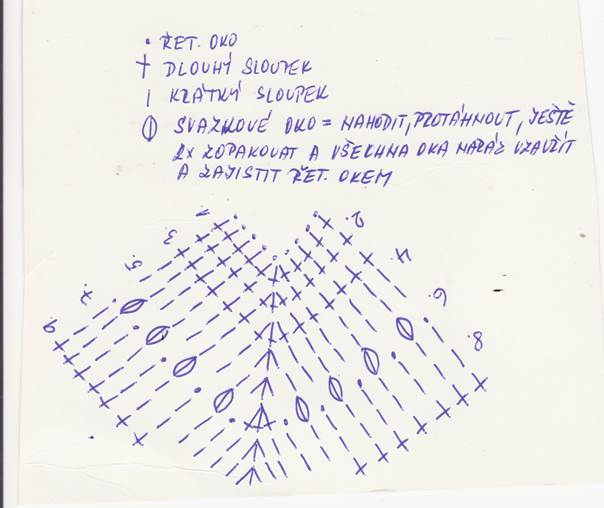 • ŘET. OKO
† DLOUHÝ SLOUPEK
| KRÁTKÝ SLOUPEK
SVAZKOVÉ OKO = NAHODIT, PROTÁHNOUT, JEŠTĚ
2X ZOPAKOVAT A VŠECHNA OKA NARÁZ UZAVŘÍT
A ZAJISTIT ŘET. OKEM
1.
2.
3.
4.
5.
6.
7.
8.
9.